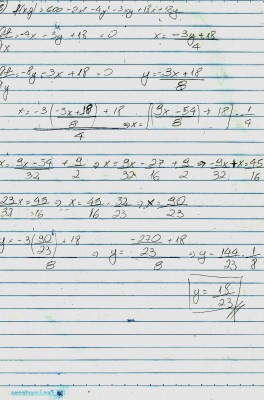 f(x,y) = 600 - 2x² - 4y² - 3xy + 18x + 18y
-4x - 3y + 18 = 0    x = -3y + 18 / 4
-8y - 3x + 18 = 0    y = -3x + 18 / 8
x = -3 (-3x + 18 / 8) + 18 / 4 ⇒ x = ((9x - 54 / 8) + 18) · 1/4
x = 9x - 54 / 32 + 9/2 ⇒ x = 9x/32 - 27/16 + 9/2 ⇒ -9x/32 + x = 45/16
23x/32 = 45/16 ⇒ x = 45/16 · 32/23 ⇒ x = 90/23
y = -3(90/23) + 18 / 8 ⇒ y = -270/23 + 18 / 8 ⇒ y = 144/23 · 1/8
y = 18/23